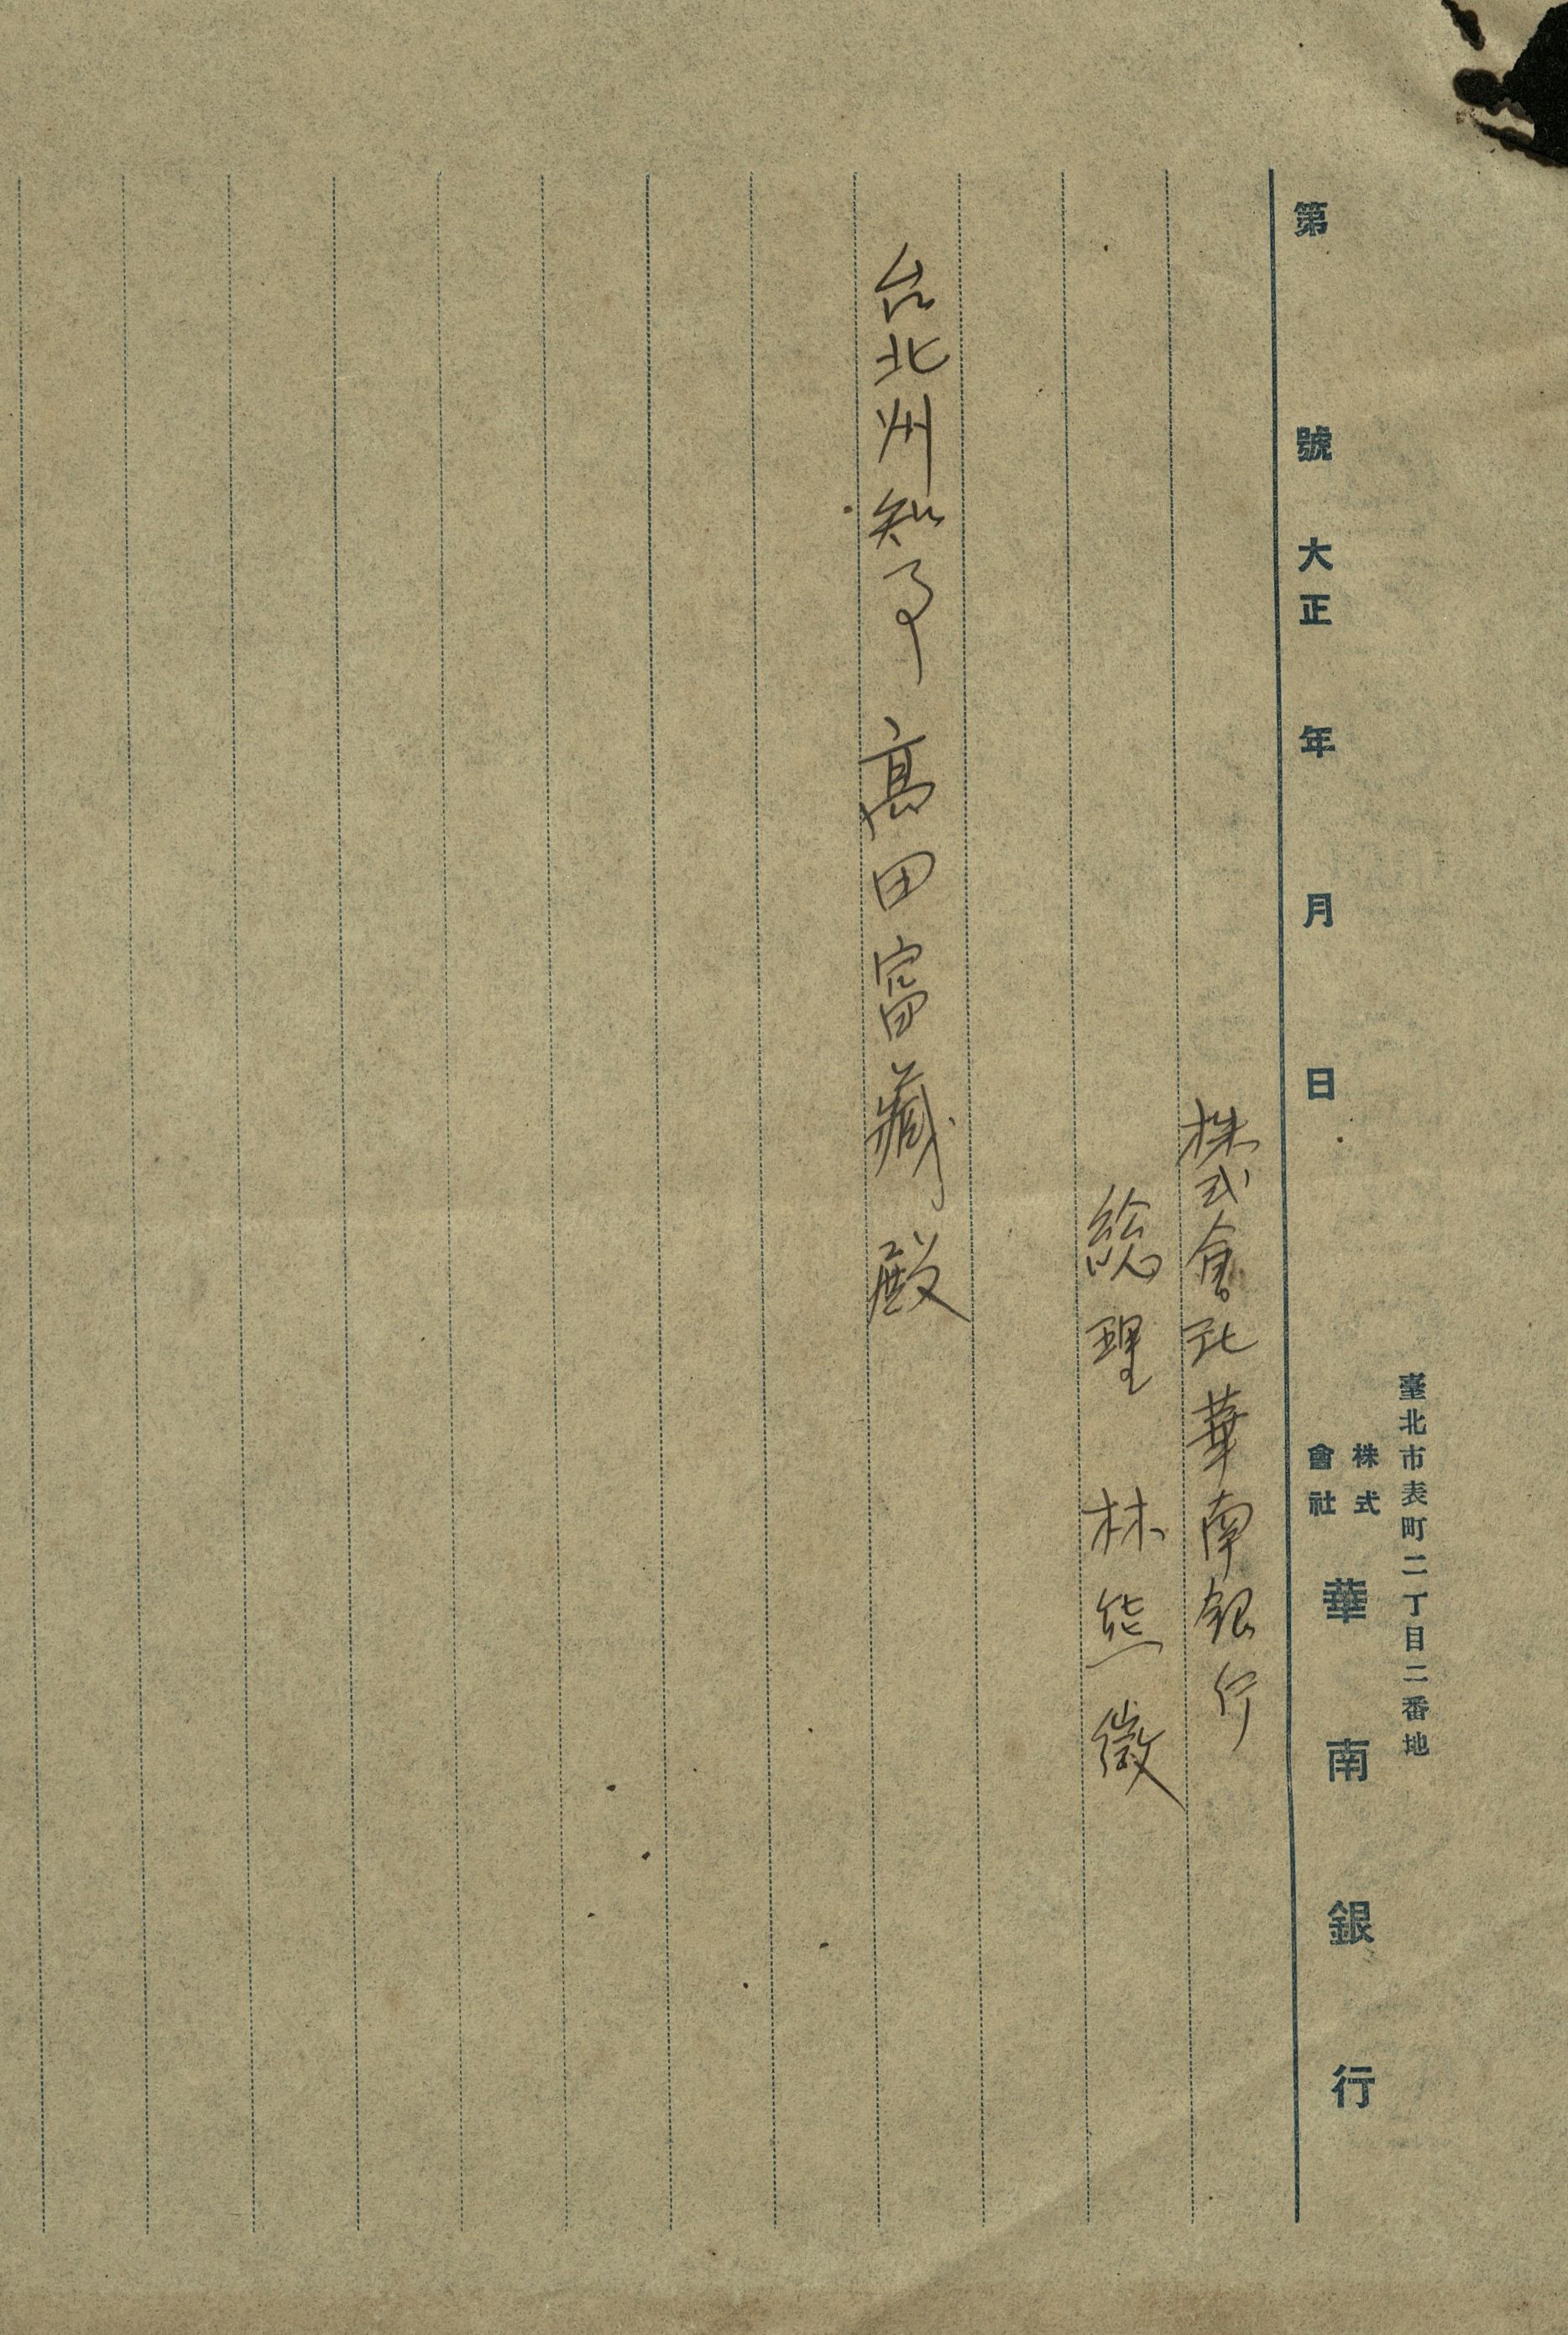 臺北市表町二丁目二番地
株式會社 華南銀行
第 號 大正 年 月 日
株式會社華南銀行
総理 林熊徴
台北州知事 高田富藏殿